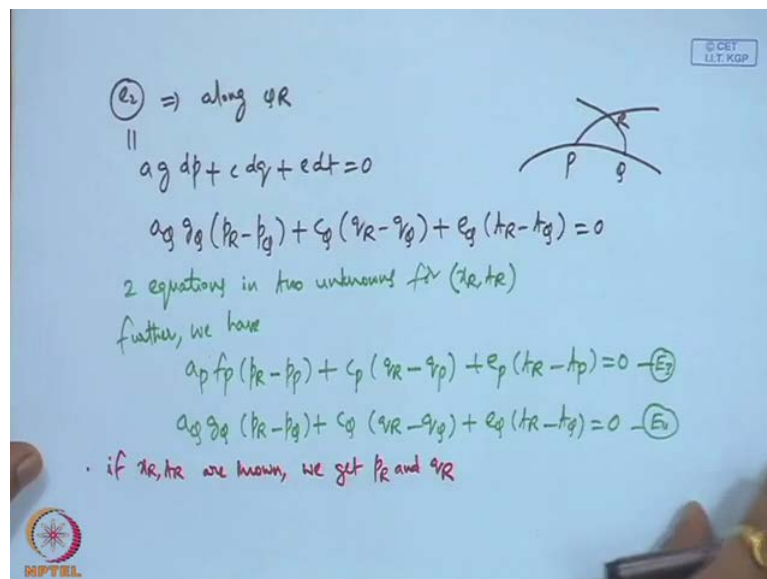 © CET
I.I.T. KGP
(e2) ⇒ along QR
||
a g dp + c dq + e dt = 0
R
P Q
a_Q g_Q (p_R - p_Q) + c_Q (q_R - q_Q) + e_Q (t_R - t_Q) = 0
2 equations in two unknowns for (x_R, t_R)
further, we have
a_P f_P (p_R - p_P) + c_P (q_R - q_P) + e_P (t_R - t_P) = 0 - (E3)
a_Q g_Q (p_R - p_Q) + c_Q (q_R - q_Q) + e_Q (t_R - t_Q) = 0 - (E4)
. if x_R, t_R are known, we get p_R and q_R
NPTEL